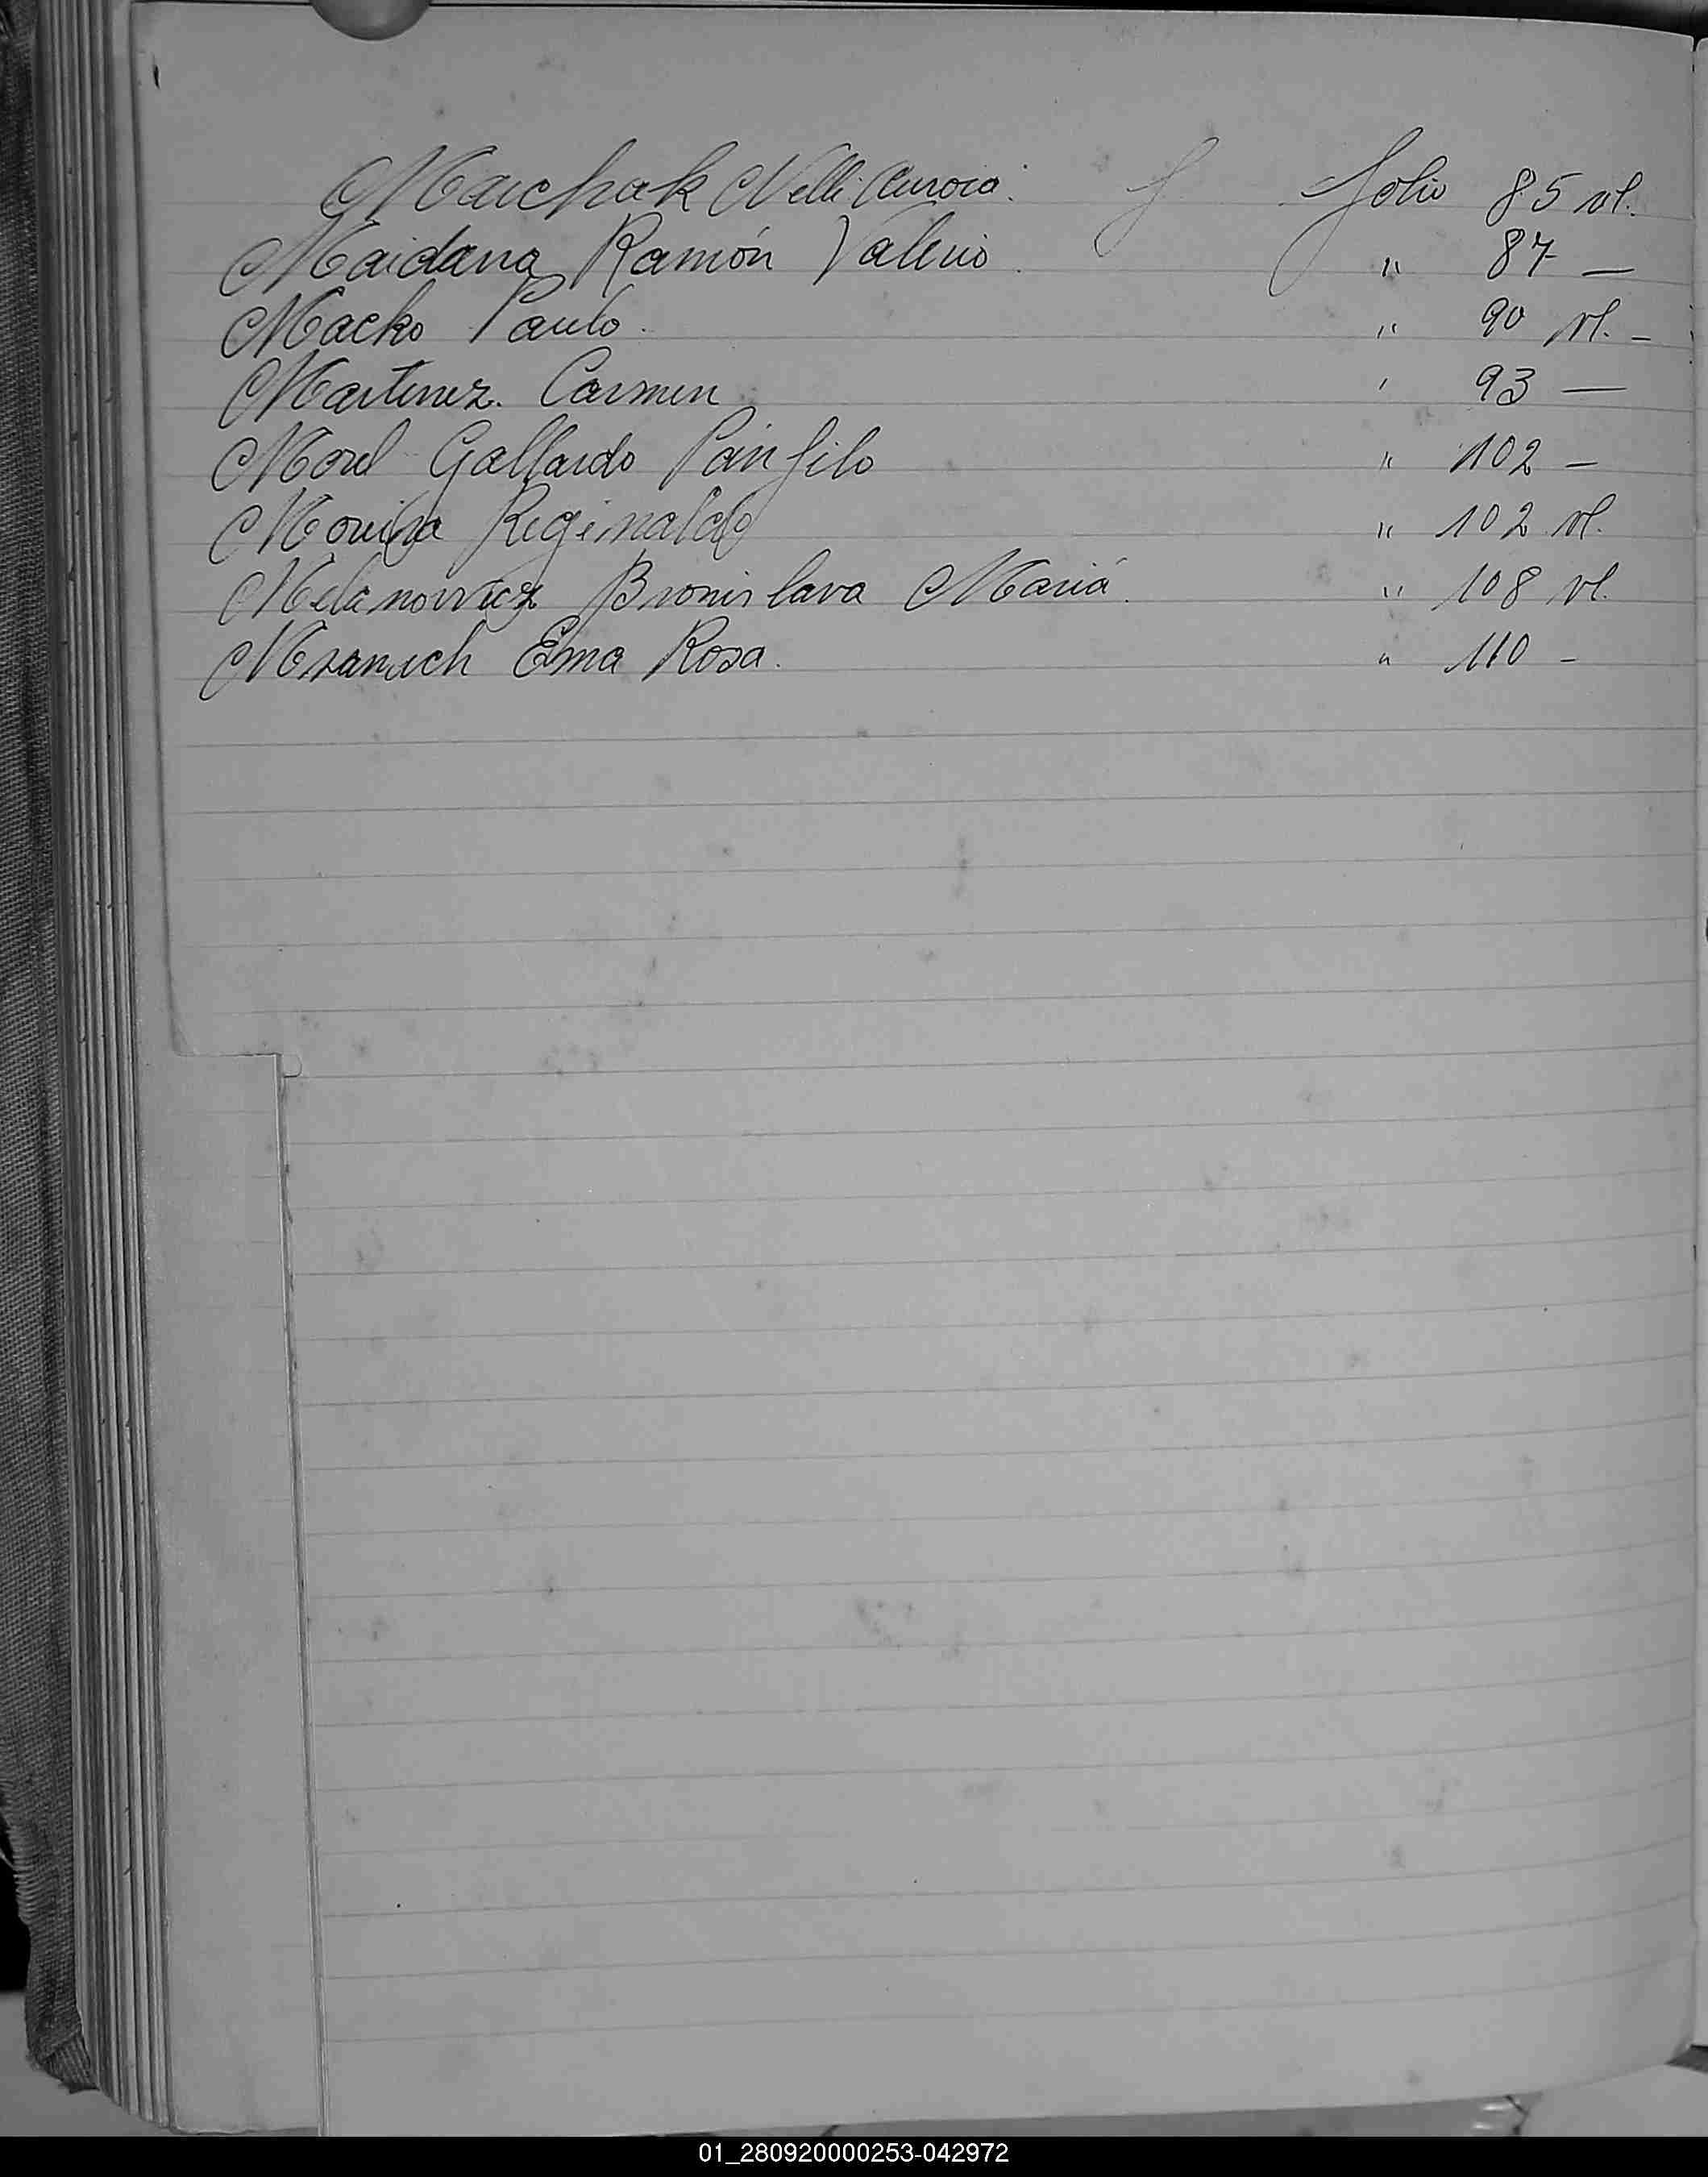 Marchak Nelli Aurora. folio 85 vl.
Maidana Ramón Valerio. " 87 —
Macko Paulo. " 90 vl. —
Martinez. Carmen ' 93 —
Morel Gallardo Pánfilo " 102 —
Moreira Reginaldo " 102 vl.
Melanowicz Bronislava Mariá. " 108 vl.
Ema Rosa. " 110 -
01_280920000253-042972